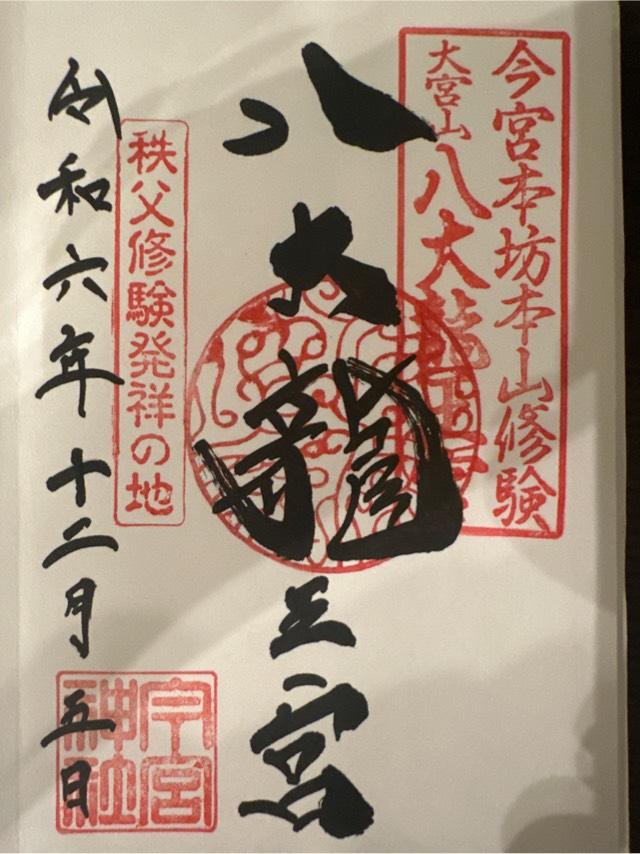 今宮本坊本山修験
大宮山八大龍王宮
八大龍王宮
秩父修験発祥の地
令和六年十二月五日
今宮
神社